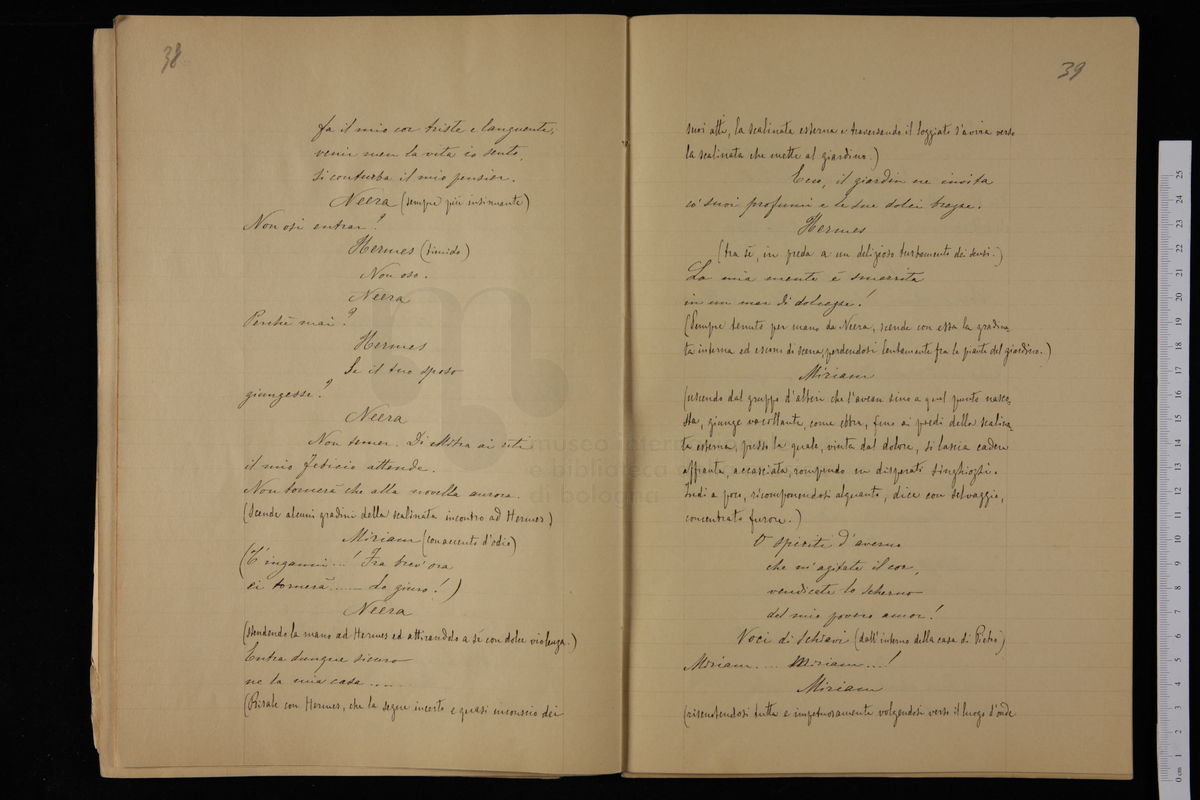 38
fa il mio cor triste e languente;
venir men la vita io sento,
si conturba il mio pensier.
Neera (sempre più insinuante)
Non osi entrar?
Hermes (timido)
Non oso.
Neera
Perchè mai?
Hermes
Se il tuo sposo
giungesse?
Neera
Non temer. Di Mitra ai riti
il mio Fedicio attende.
Non tornerà che alla novella aurora.
(Scende alcuni gradini della scalinata incontro ad Hermes)
Miriam (con accento d'odio)
(T'inganni...! Fra brev'ora
ei tornerà...... lo giuro!)
Neera
(stendendo la mano ad Hermes ed attirandolo a sè con dolce violenza.)
Entra dunque sicuro
ne la mia casa.....
(Risale con Hermes, che la segue incerto e quasi inconscio dei
39
suoi atti, la scalinata esterna e traversando il loggiato s'avvia verso
la scalinata che mette al giardino.)
Ecco, il giardin ne invita
co' suoi profumi e le sue dolci brezze.
Hermes
(tra sè, in preda a un delizioso turbamento dei sensi.)
La mia mente è smarrita
in un mar di dolcezze!
(Sempre tenuto per mano da Neera, scende con essa la gradina-
ta interna ed escono di scena, perdendosi lentamente fra le piante del giardino.)
Miriam
(uscendo dal gruppo d'alberi che l'avean sino a quel punto nasco-
sta, giunge vacillante, come ebbra, fino ai piedi della scalina-
ta esterna, presso la quale, vinta dal dolore, si lascia cadere
affranta, accasciata, rompendo in disperati singhiozzi.
Indi a poco, ricomponendosi alquanto, dice con selvaggio,
concentrato furore.)
O spiriti d'averno
che m'agitate il cor,
vendicate lo scherno
del mio povero amor!
Voci di Schiavi (dall'interno della casa di Pietro)
Miriam.... Miriam...!
Miriam
(riscuotendosi tutta e impetuosamente volgendosi verso il luogo d'onde